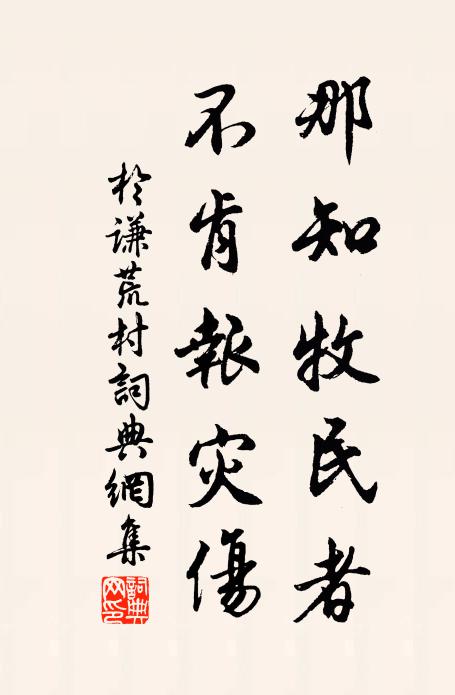 那知牧民者
不肯報灾傷
於謙荒村詞典網集
詞典网印